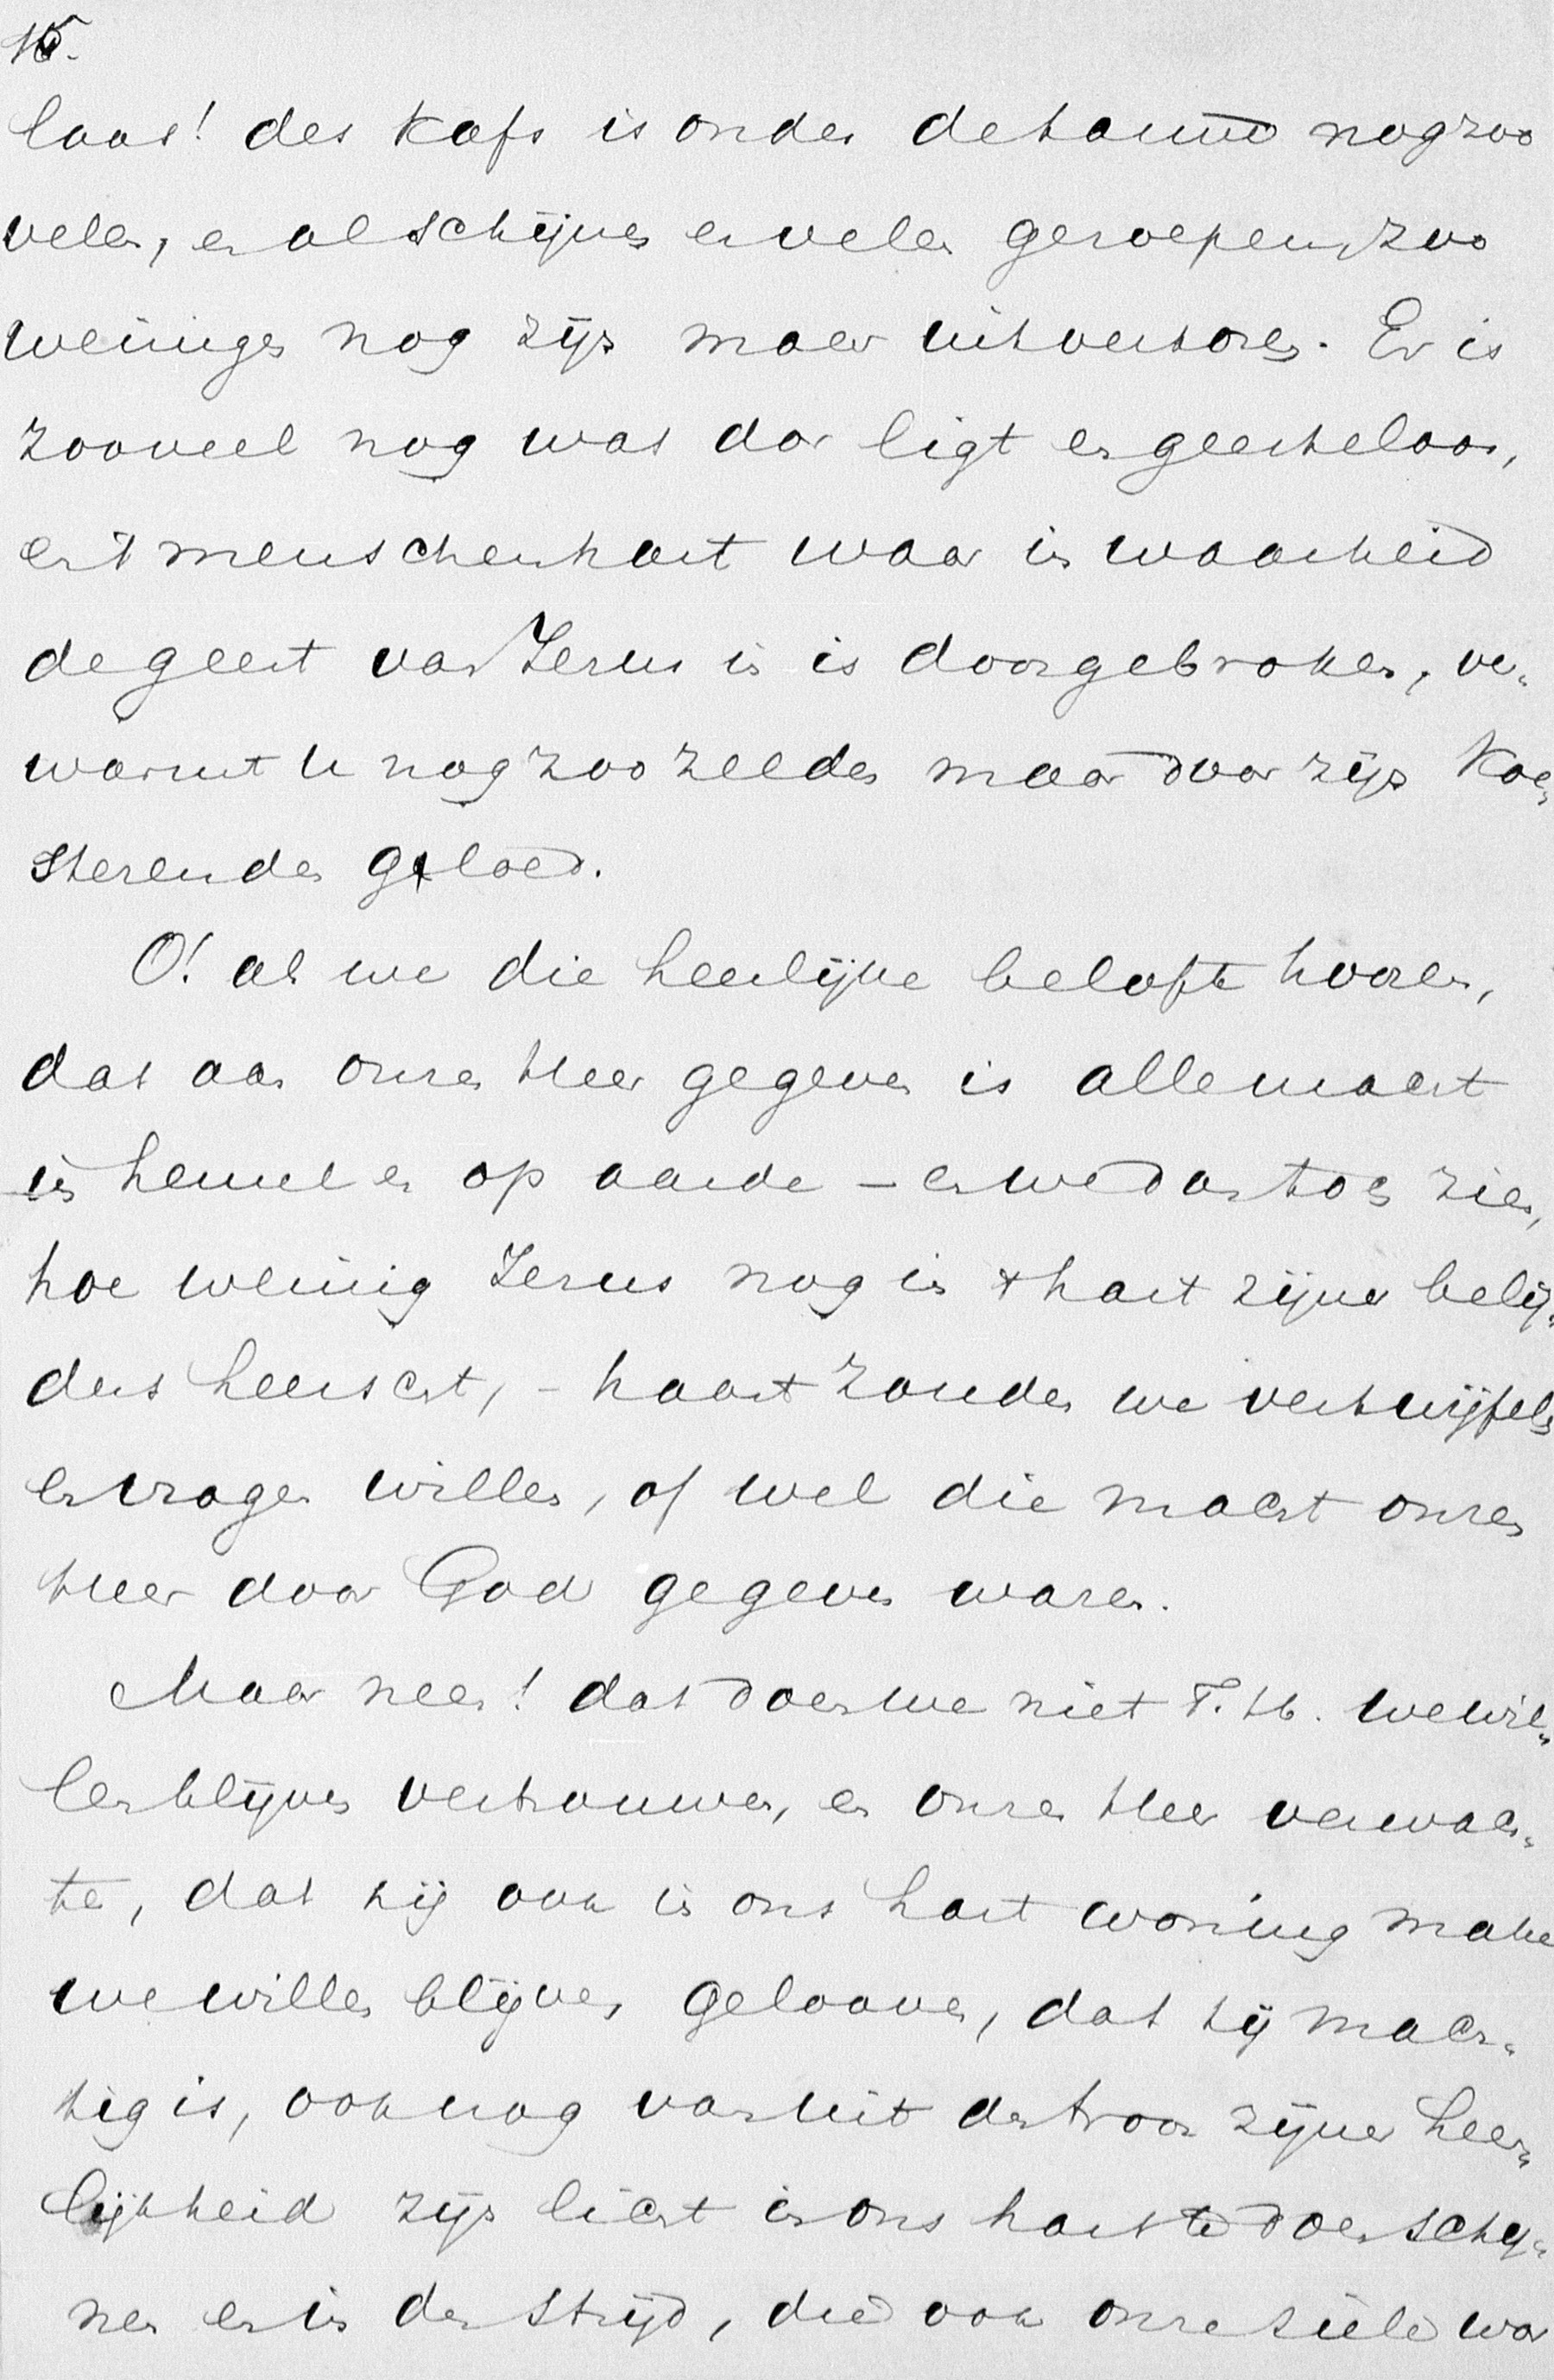 15.
laas! des kafs is onder de tarwe nog zoo
veler, en al schijnen er velen geroepen, zoo
weinigen nog zijn maar uitverkoren. Er is
zooveel nog wat dor ligt en geesteloos,
en 't menschenhart waar in waarheid
de geest van Jezus in is doorgebroken, ver-
warmt u nog zoo zelden maar door zijn koe-
sterenden gloed.
O! als we die heerlijke belofte hooren,
dat aan onzen Heer gegeven is alle macht
in hemel en op aarde – en we dan toch zien,
hoe weinig Jezus nog in 't hart zijner belij-
ders heerscht, – haast zouden we vertwijfelen
en vragen willen, of wel die macht onzen
Heer door God gegeven ware.
Maar neen! dat doen we niet T. H. we wil-
len blijven vertrouwen, en onzen Heer verwach-
ten, dat hij ook in ons hart woning make
we willen blijven gelooven, dat hij mach-
tig is, ook nog van uit den troon zijner heer-
lijkheid zijn licht in ons hart te doen schij-
nen en in den strijd, die ook onze ziele van